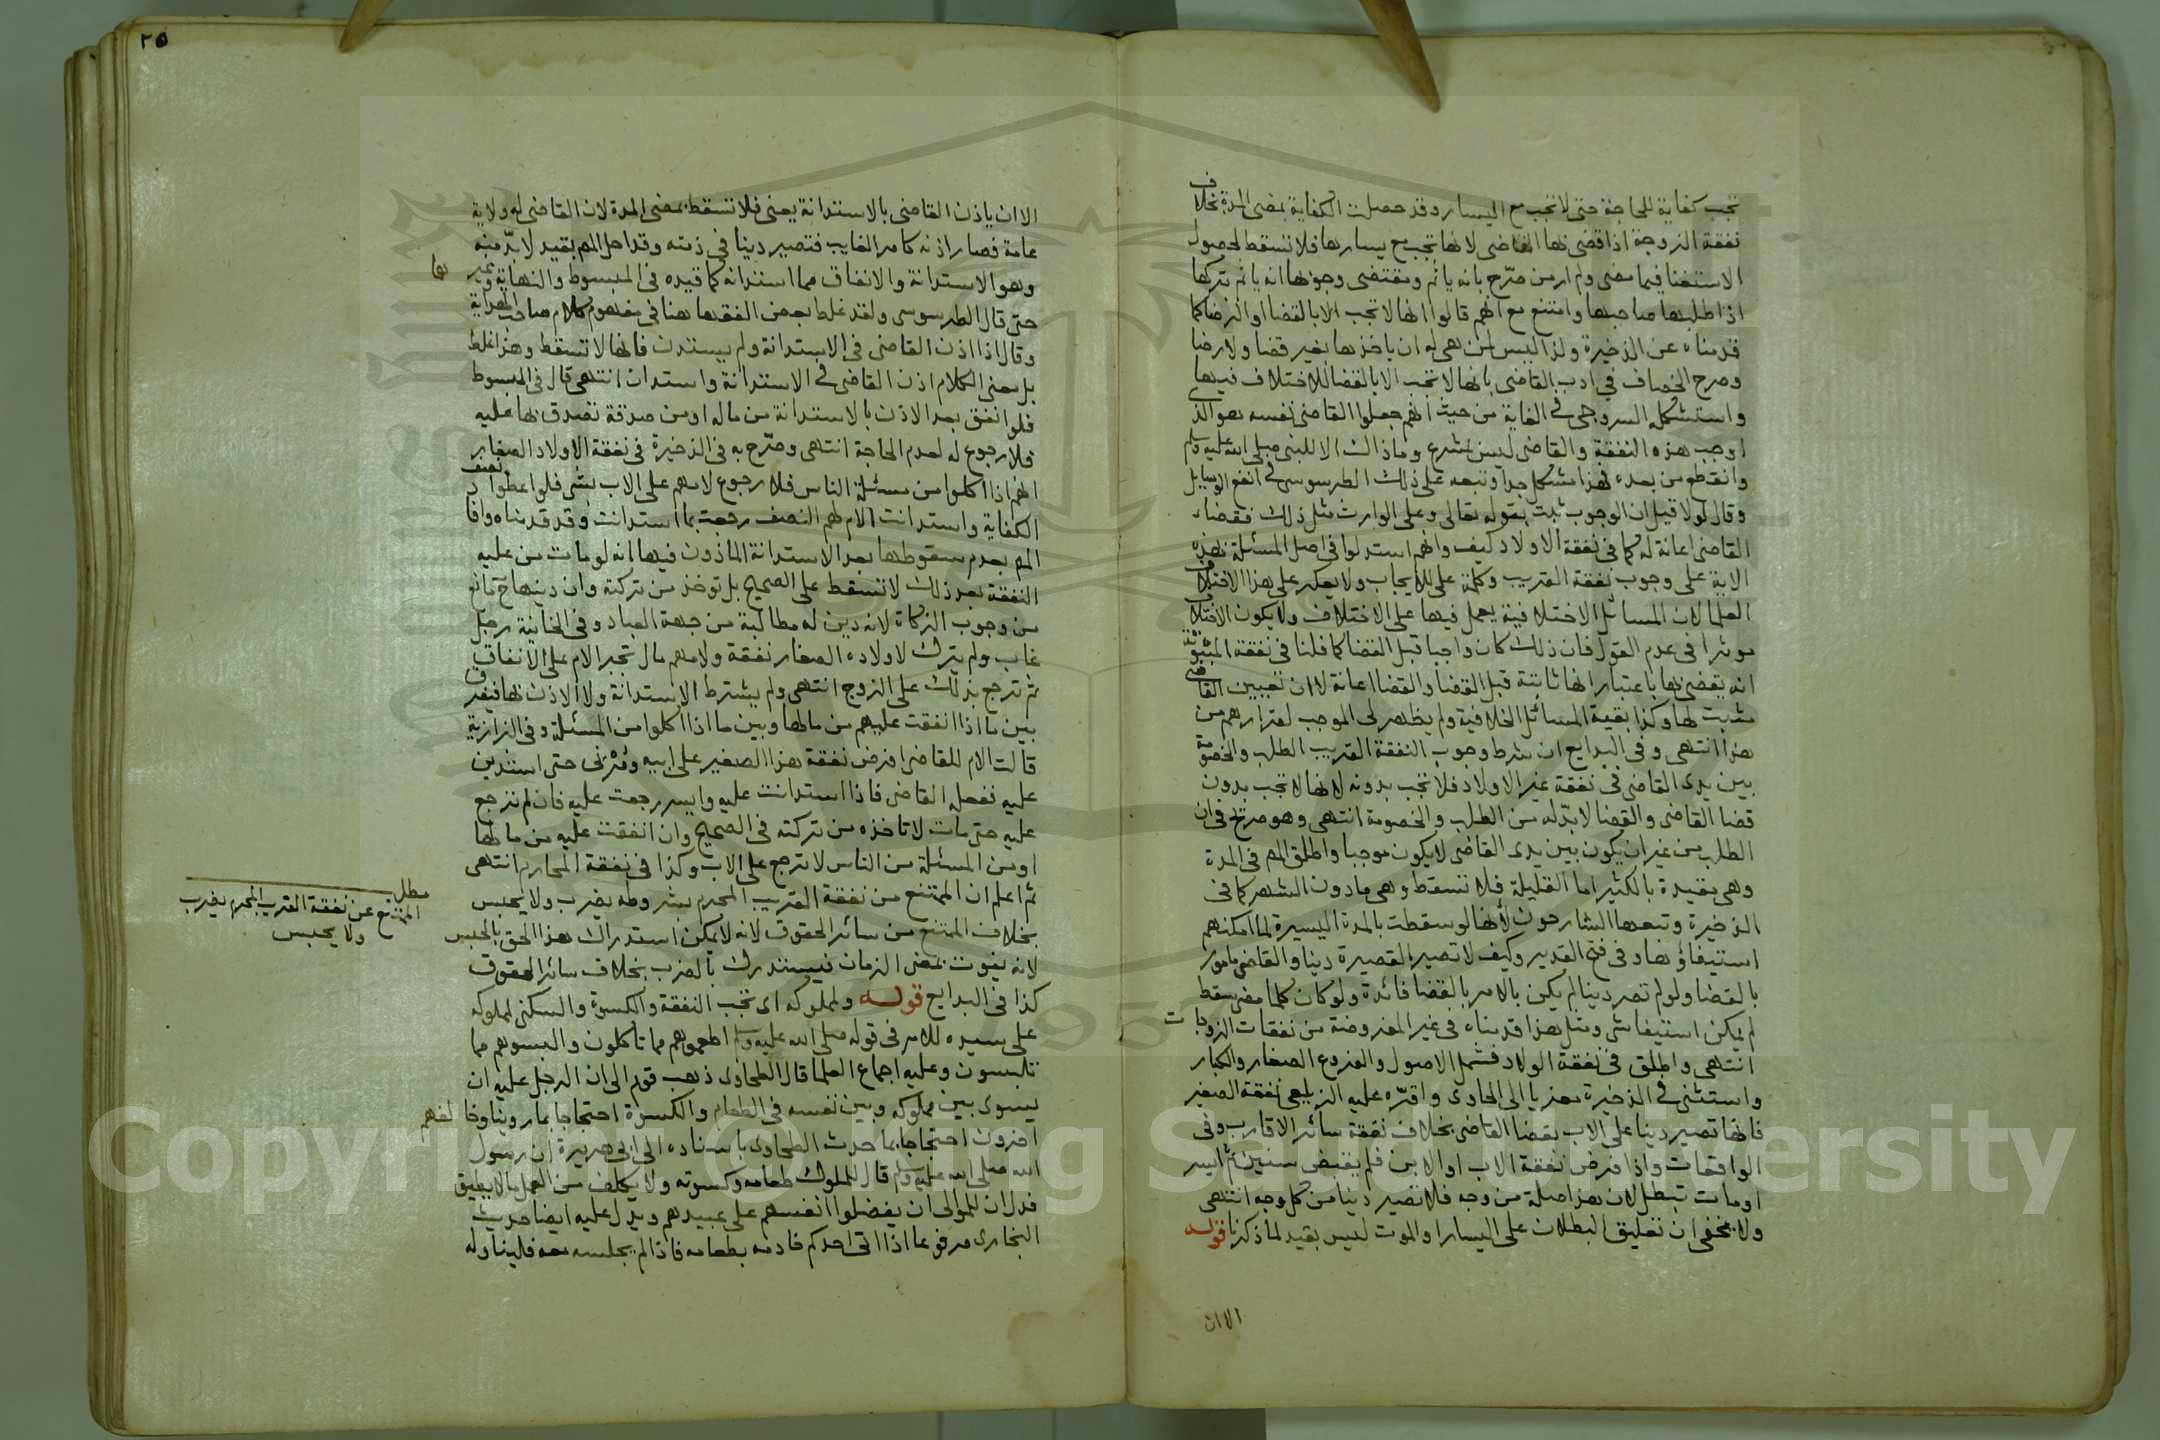 تجب كفاية للحاجة حتى لا تجب مع اليسار وقد حصلت الكفاية بمضى المدة بخلاف
نفقة الزوجة اذا قضى بها القاضى لانها تجب مع يسارها فلا تسقط لحصول
الاستغنا فيما مضى ولم ار من صرّح بانه ياثم ومقتضى وجوبها انه ياثم بتركها
اذا طلبها صاحبها وامتنع مع انهم قالوا انها لا تجب الا بالقضا او الرضا كما
قدمناه عن الذخيرة ولذا ليس لمن هى له ان ياخذها بغير قضا ولا رضا
وصرح الخصاف في ادب القاضى بانها لا تجب الا بالقضا للاختلاف فيها
واستشكله السروجى فى الغاية من حيث انهم جعلوا القاضى نفسه هو الذى
اوجب هذه النفقة والقاضى ليس بمشرع وما ذاك الا للنبى صلى الله عليه وسلم
وانقطع من بعده فهذا مشكل جدا وتبعه على ذلك الطرسوسى فى انفع الوسايل
وقال لولا قيل ان الوجوب ثبت بقوله تعالى وعلى الوارث مثل ذلك فقضاء
القاضى اعانة له كما فى نفقة الاولاد كيف وانهم استدلوا فى اصل المسئلة بهذه
الاية على وجوب نفقة القريب وكلمة على للايجاب ولا يعكر على هذا اختلاف
العلما لان المسائل الاختلافية يعمل فيها على الاختلاف ولا يكون الاختلاف
موثرا فى عدم القول فان ذلك كان واجبا قبل القضا كما قلنا فى نفقة المبتوتة
انه يقضى بها باعتبار انها ثابتة قبل القضا والقضا اعانة لا ان تعيين القاضى
مثبت لها وكذا بقية المسائل الخلافية ولم يظهر لى الموجب لفرارهم من
هذا انتهى وفى البدايع ان شرط وجوب النفقة القريب الطلب والخصومة
بين يدى القاضى فى نفقة غير الاولاد فلا تجب بدونه لانها لا تجب بدون
قضا القاضى والقضا لا بدّ له من الطلب والخصومة انتهى وهو صريح فى ان
الطلب من غير ان يكون بين يدى القاضى لا يكون موجبا واطلق المص فى المدة
وهى مقيدة بالكثير اما القليلة فلا تسقط وهى ما دون الشهر كما فى
الذخيرة وتبعها الشارحون لانها لو سقطت بالمدة اليسيرة لما امكنهم
استيفاؤها وفى فتح القدير وكيف لا تصير القصيرة دينا والقاضى مامور
بالقضا ولو لم تصر دينا لم يكن بالامر بالقضا فائدة ولو كان كلما مضى سقط
لم يمكن استيفا شى ومثل هذا قدمناه فى غير المفروضة من نفقات الزوجات
انتهى واطلق فى نفقة الولاد فشمل الاصول والفروع الصغار والكبار
واستثنى فى الذخيرة معزيا الى الحاوى واقرّه عليه الزيلعى نفقة الصغير
فانها تصير دينا على الاب بقضا القاضى بخلاف نفقة سائر الاقارب وفى
الواقعات واذا فرض نفقة الاب او الابن فلم يقبض سنين ثم ايسر
او مات تبطل لان هذا صلة من وجه فلا تصير دينا من كل وجه انتهى
ولا يخفى ان تعليق البطلان على اليسار او الموت ليس بقيد لما ذكرنا قوله
الا ان
٢٥
الا ان ياذن القاضى بالاستدانة يعنى فلا تسقط بمضى المدة لان القاضى له ولاية
عامة فصار اذنه كامر الغايب فتصير دينا فى ذمته وقد اخل المص بقيد لا بدّ منه
وهو الاستدانة والانفاق مما استدانه كما قيده فى المبسوط والنهاية وغيرها
حتى قال الطرسوسى ولقد غلط بعض الفقها هنا فى مفهوم كلام صاحب الهداية
وقال اذا اذن القاضى فى الاستدانة ولم يستدن فانها لا تسقط وهذا غلط
بل معنى الكلام اذن القاضى فى الاستدانة واستدان انتهى قال فى المبسوط
فلو انفق بعد الاذن بالاستدانة من ماله او من صدقة تصدق بها عليه
فلا رجوع له لعدم الحاجة انتهى وصرّح به فى الذخيرة فى نفقة الاولاد الصغار
انهم اذا اكلوا من مسئلة الناس فلا رجوع لامهم على الاب بشى فلو اعطوا نصف
الكفاية واستدانت الام لهم النصف رجعت بما استدانت وقد قدمناه وافاد
المص بعدم سقوطها بعد الاستدانة الماذون فيها انه لو مات من عليه
النفقة بعد ذلك لا تسقط على الصحيح بل توخذ من تركته وان دينها ح مانع
من وجوب الزكاة لانه دين له مطالبة من جهة العباد وفى الخانية رجل
غاب ولم يترك لاولاده الصغار نفقة ولامهم مال تجبر الام على الانفاق
ثم ترجع بذلك على الزوج انتهى ولم يشترط الاستدانة ولا الاذن بها فيفرق
بين ما اذا انفقت عليهم من مالها وبين ما اذا اكلوا من المسئلة وفى البزازية
قالت الام للقاضى افرض نفقة هذا الصغير على ابيه ومرنى حتى استدين
عليه نفعله القاضى فاذا استدانت عليه وايسر رجعت عليه فان لم ترجع
عليه حتى مات لا تاخذه من تركته فى الصحيح وان انفقت عليه من مالها
او من المسئلة من الناس لا ترجع على الاب وكذا فى نفقة المحارم انتهى
ثم اعلم ان الممتنع من نفقة القريب المحرم بشروطه يضرب ولا يحبس
بخلاف الممتنع من سائر الحقوق لانه لا يمكن استدراك هذا الحق بالحبس
لانه يفوت بمضى الزمان فيستدرك بالضرب بخلاف سائر الحقوق
كذا فى البدايع قوله ولمملوكه اى تجب النفقة والكسوة والسكنى لمملوكه
على سيده للامر فى قوله صلى الله عليه وسلم اطعموهم مما تاكلون والبسوهم مما
تلبسون وعليه اجماع العلما قال الطحاوى ذهب قوم الى ان الرجل عليه ان
يسوى بين مملوكه وبين نفسه فى الطعام والكسوة احتجاجا بما روينا وخالفهم
اخرون احتجاجا بما حدث الطحاوى باسناده الى ابى هريرة ان رسول
الله صلى الله عليه وسلم قال للملوك طعامه وكسوته ولا يكلف من العمل ما لا يطيق
فدل ان للموالى ان يفضلوا انفسهم على عبيدهم ويدل عليه ايضا حديث
البخارى مرفوعا اذا اتى احدكم خادمه بطعامه فاذا لم يجلسه معه فليناوله
مطلب
الممتنع عن نفقة القريب المحرم يضرب
ولا يحبس
Copyright © King Saud University
1957